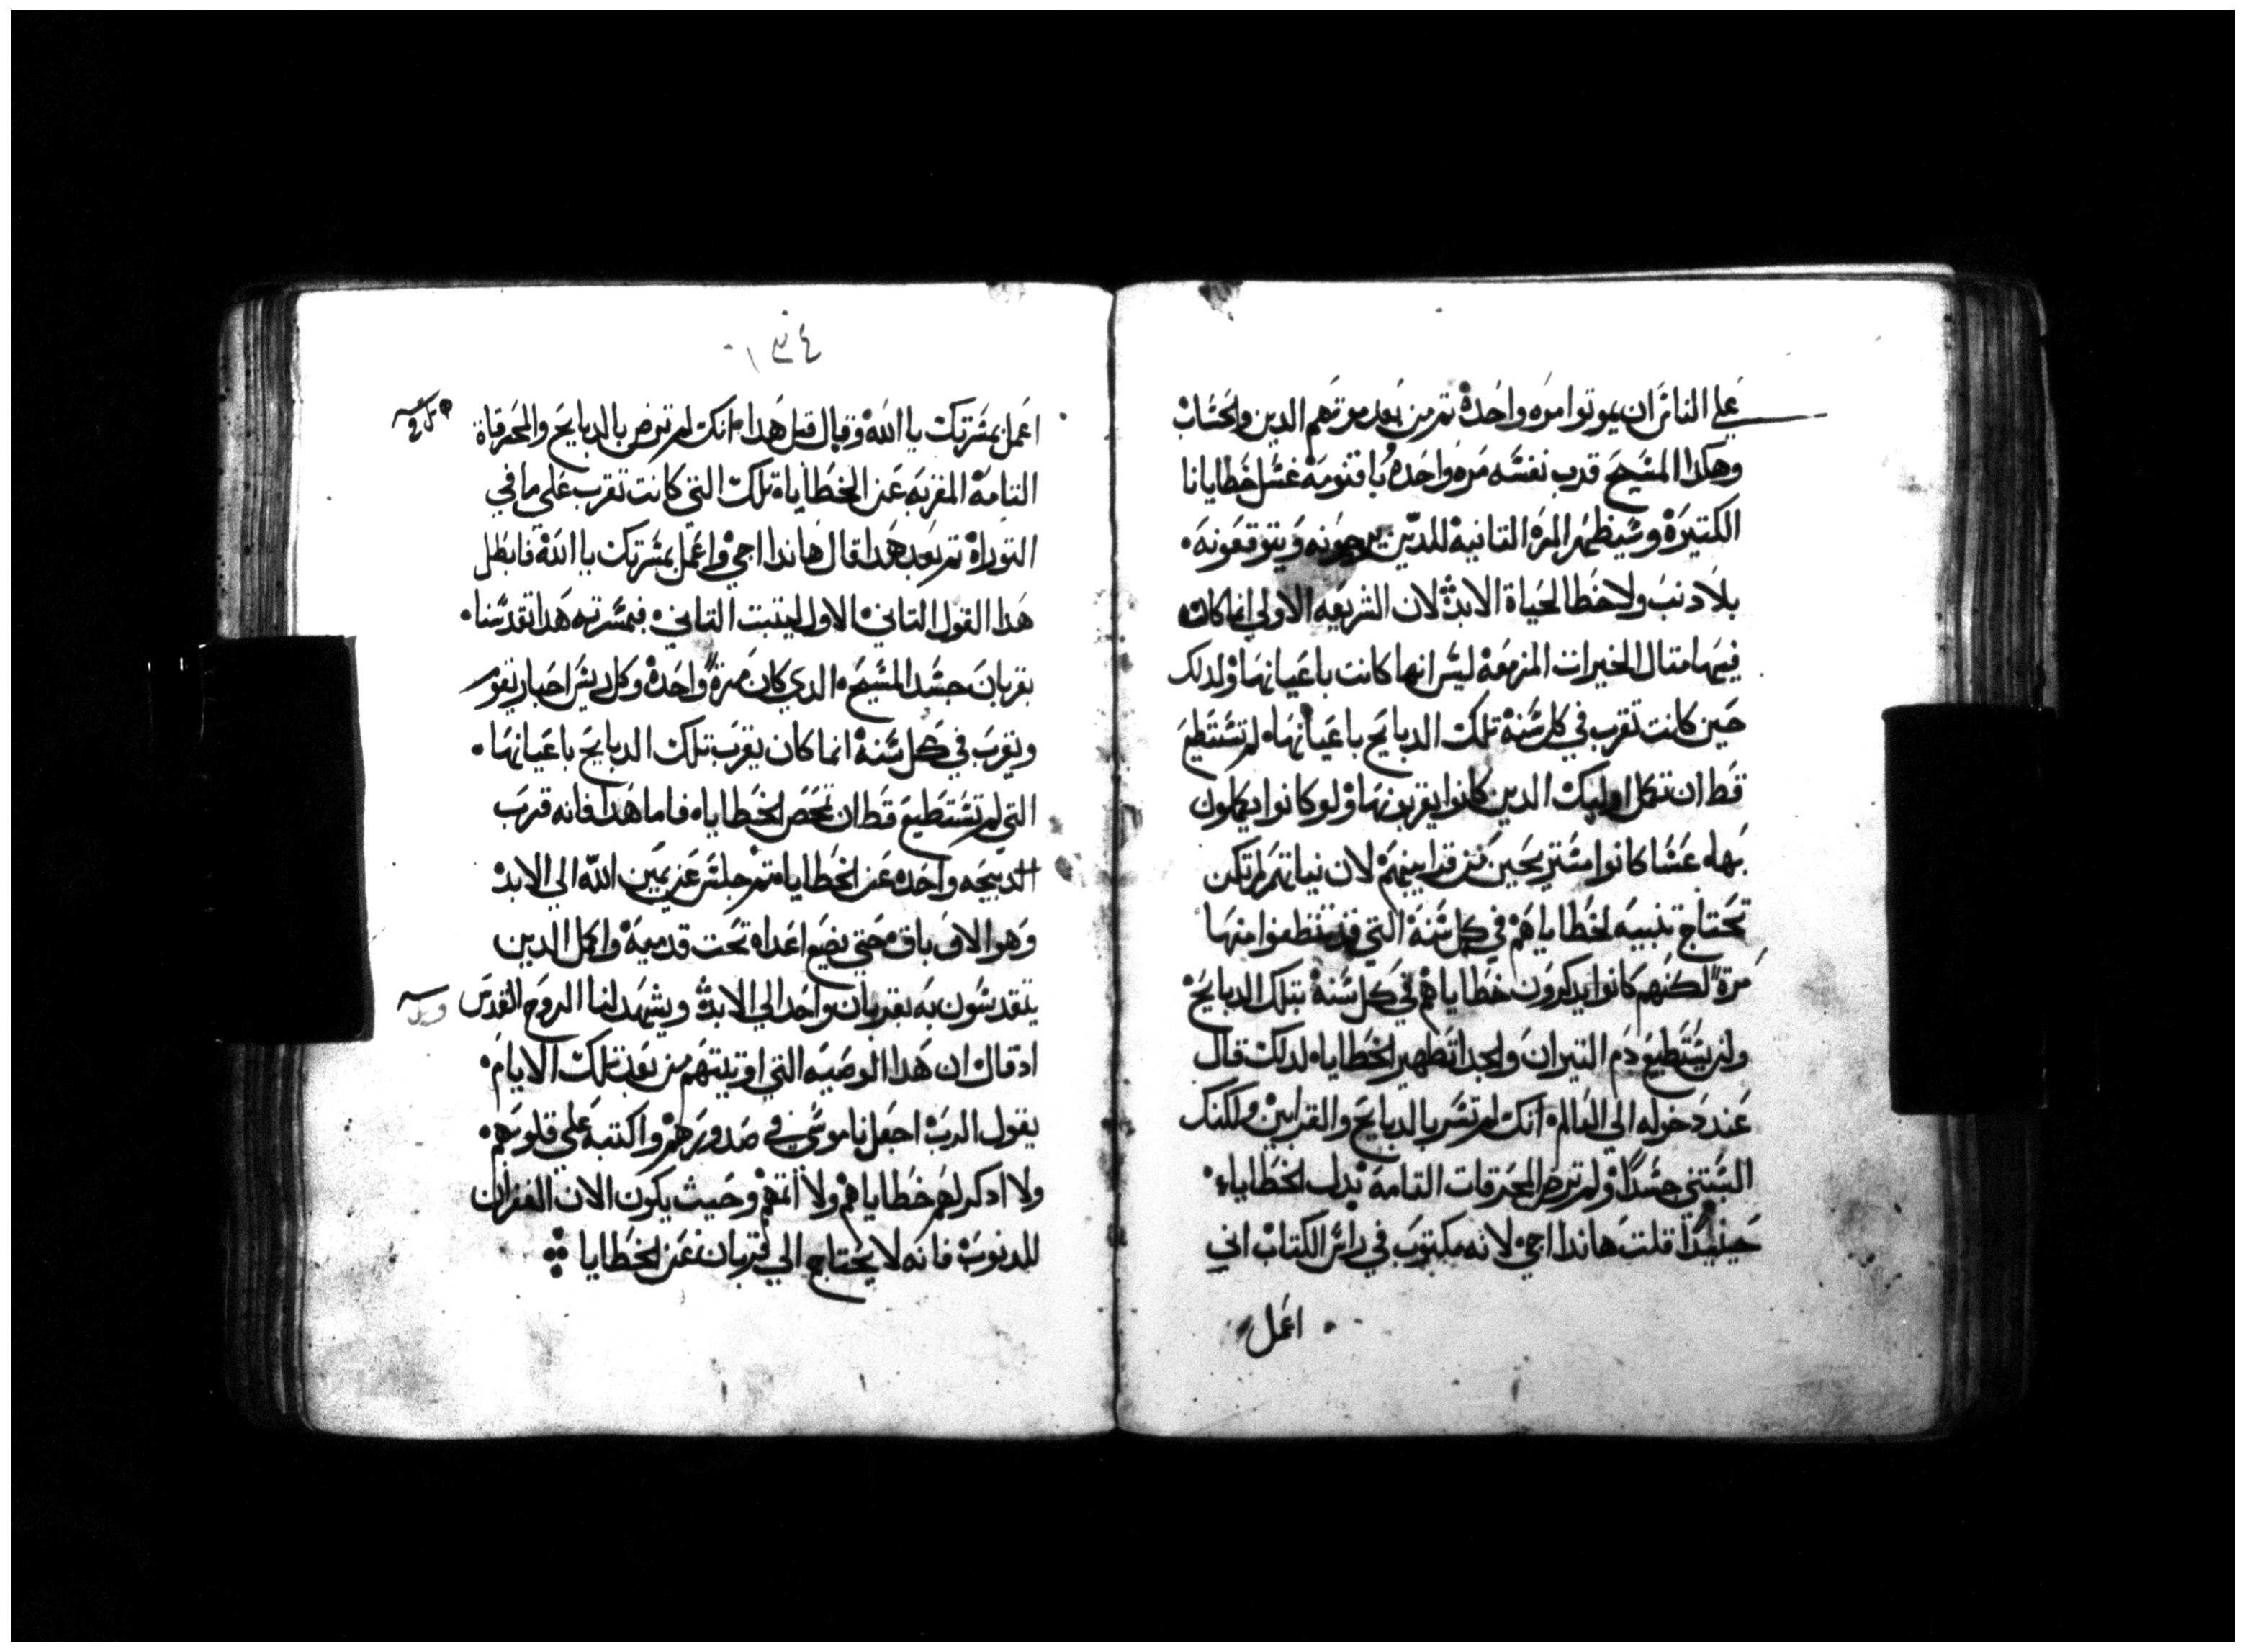 علي الناس ان يموتوا مره واحدة تم من بعد موتهم الدين والحساب
وهكدا المسيح قرب نفسه مره واحده باقنومه غسل خطايانا
الكتيرة وسيظهر المرة التانية للدين يرجونه ويتوقعونه
بلا دنب ولا خطا لحياة الابد لان الشريعه الاولي انما كان
فيها متال الخيرات المزمعة ليس انها كانت باعيانها ولدلك
حين كانت تقرب في كل سنة تلك الدبايح باعيانها لم تستطيع
قط ان تكمل اوليك الدين كانوا يقربونها ولو كانوا يكملون
بها عسا كانوا مستريحين من قرابينهم لان نياتهم لم تكن
تحتاج تنبيه لخطاياهم في كل سنة التي قد تنظفوا منها
مرة لكنهم كانوا يدكرون خطاياهم في كل سنة بتلك الدبايح
ولن يستطيع دم التيران والجدا تطهير الخطايا لدلك قال
عند دخوله الي العالم انك لم تسر بالدبايح والقرابين ولكنك
البستني جسدا ولم ترض المحرقات التامة بدل الخطايا
حينيدا قلت هاندا اجي لانه مكتوب في راس الكتاب اني
اعمل
١٣٤
اعمل بمسرتك يا الله وقال قبل هدا انك لم ترض بالدبايح والمحرقاة
التامة المقربه عن الخطايا تلك التي كانت تقرب علي ما في
التوراة تم بعد هدا قال هاندا اجي واعمل بمسرتك يا الله فابطل
هدا القول التاني الاول ليتبت التاني فبمسرته هدا تقدسنا
بقربان جسد المسيح الدي كان مرة واحدة وكل ريس احبار يقوم
ويقرب في كل سنة انما كان يقرب تلك الدبايح باعيانها
التي لم تستطيع قط ان تمحص الخطايا فاما هدا فانه قرب
الدبيحه واحده عن الخطايا تم جلس عن يمين الله الي الابد
وهو الان باق حتي يضع اعداه تحت قدميه واكمل الدين
يتقدسون به بقربان واحد الي الابد ويشهد لنا الروح القدس
اد قال ان هدا الوصيه التي اوتيتهم من بعد تلك الايام
يقول الرب اجعل ناموسي في صدورهم واكتبه علي قلوبهم
ولا ادكر لهم خطاياهم ولا اتمهم وحيت يكون الان الغفران
للدنوب فانه لا يحتاج الي قربان عن الخطايا